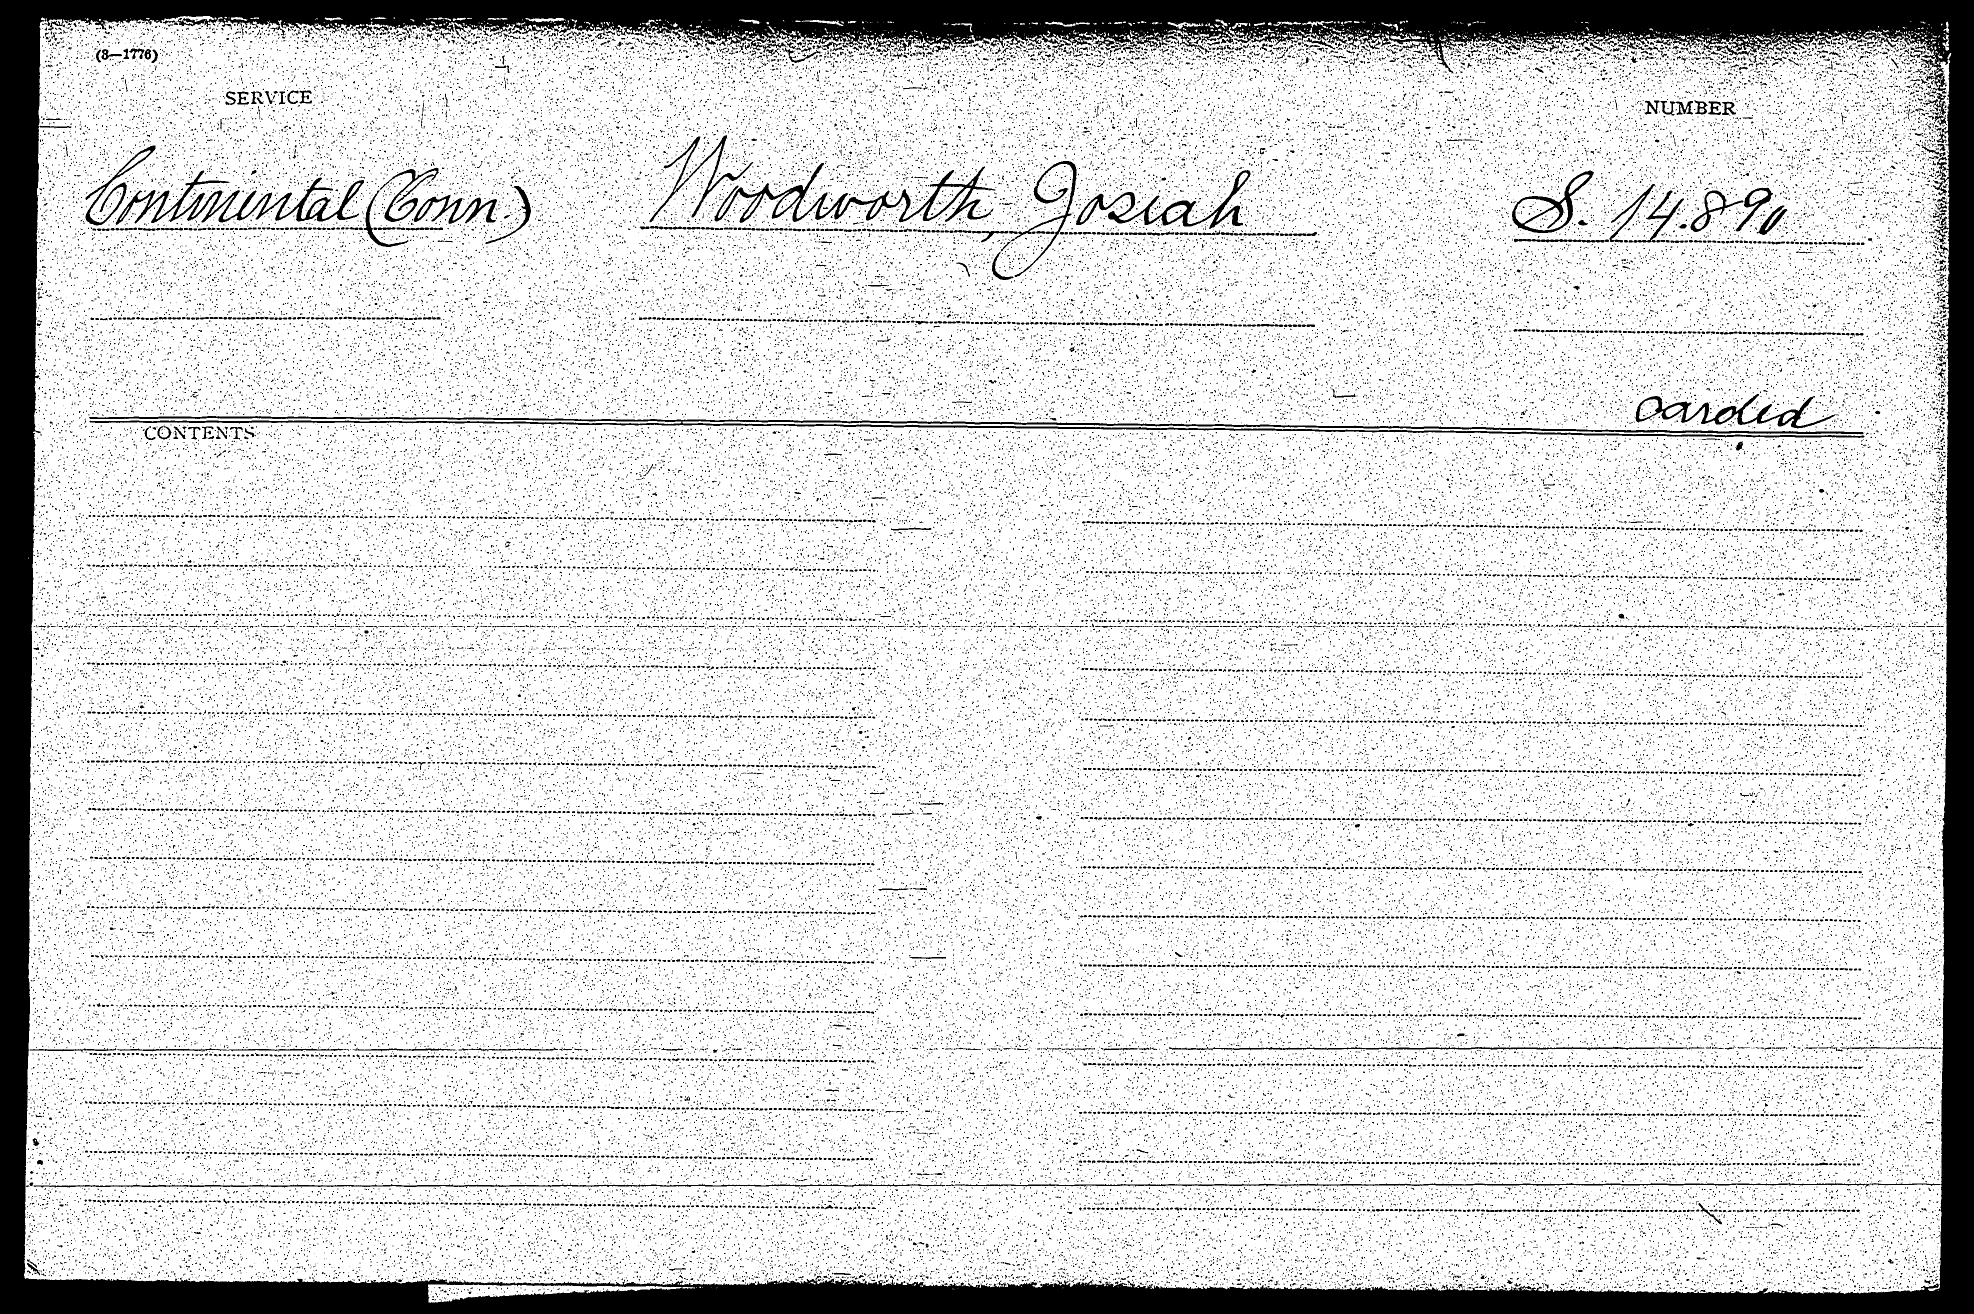 (3—1776)
SERVICE
NUMBER
Continental (Conn.)
Woodworth, Josiah
S. 14.890
carded
CONTENTS